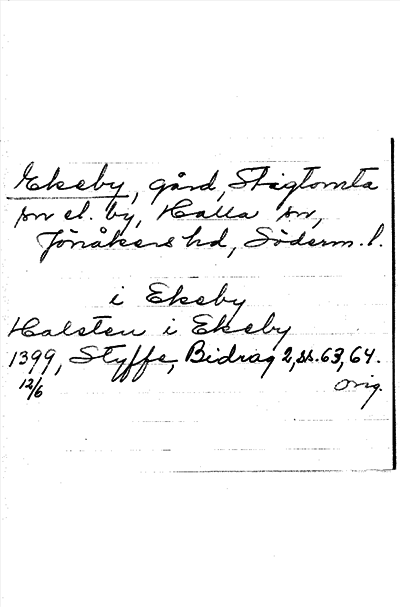 Ekeby, gård, Stigtomta
sn el. by, Halla sn,
Jönåkers hd, Söderm. l.
i Ekeby
Halsten i Ekeby
1399, Styffe, Bidrag 2, ss. 63, 64.
12/6 Orig.